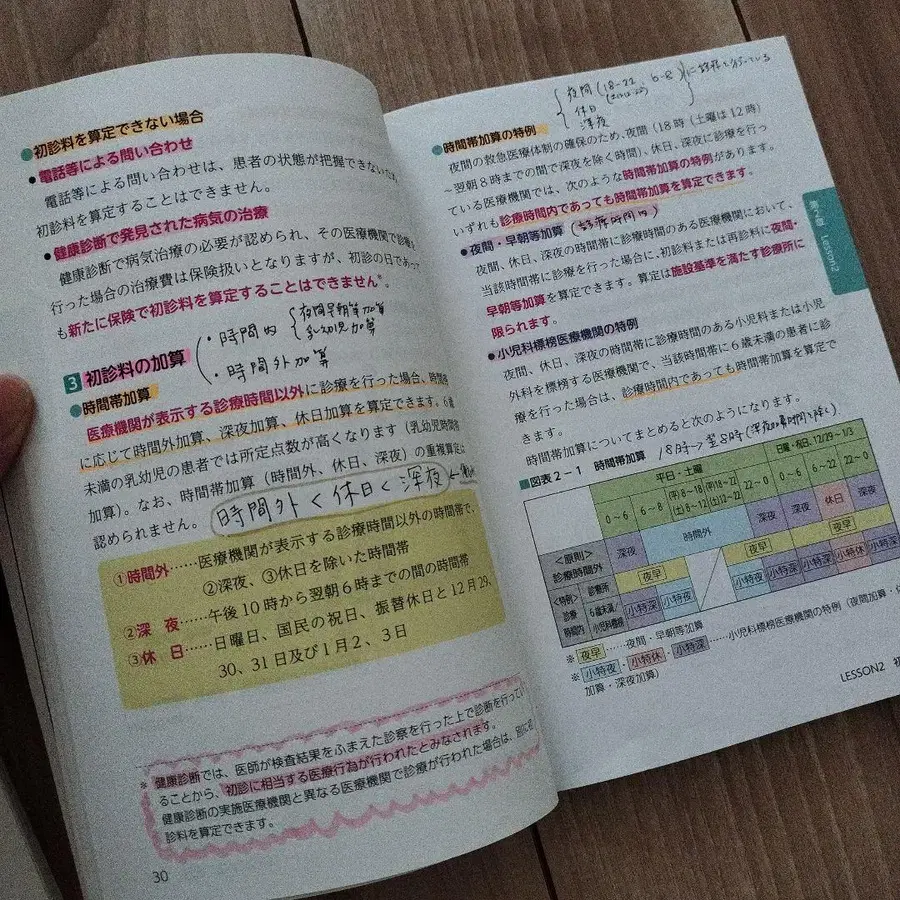 初診料を算定できない場合
電話等による問い合わせ
電話等による問い合わせは、患者の状態が把握できないため、
初診料を算定することはできません。
健康診断で発見された病気の治療
健康診断で病気治療の必要が認められ、その医療機関で診療を
行った場合の治療費は保険扱いとなりますが、初診の日であって
も新たに保険で初診料を算定することはできません*。
3 初診料の加算
・時間内 夜間早朝等加算
乳幼児加算
・時間外加算
時間帯加算
医療機関が表示する診療時間以外に診療を行った場合、時間帯
に応じて時間外加算、深夜加算、休日加算を算定できます。6歳
未満の乳幼児の患者では所定点数が高くなります（乳幼児時間帯
加算）。なお、時間帯加算（時間外、休日、深夜）の重複算定は
認められません。
時間外＜休日＜深夜
①時間外……医療機関が表示する診療時間以外の時間帯で、
②深夜、③休日を除いた時間帯
②深 夜……午後10時から翌朝6時までの間の時間帯
③休 日……日曜日、国民の祝日、振替休日と12月29、
30、31日及び1月2、3日
* 健康診断では、医師が検査結果をふまえた診察を行った上で診断を行ってい
ることから、初診に相当する医療行為が行われたとみなされます。
健康診断の実施医療機関と異なる医療機関で診療が行われた場合は、別に初
診料を算定できます。
30
夜間（18-22、6-8）
休日
深夜
に診療を行っている
時間帯加算の特例
夜間の救急医療体制の確保のため、夜間（18時（土曜は12時）
～翌朝8時までの間で深夜を除く時間）、休日、深夜に診療を行っ
ている医療機関では、次のような時間帯加算の特例があります。
いずれも診療時間内であっても時間帯加算を算定できます。
夜間・早朝等加算（診療所時間内）
夜間、休日、深夜の時間帯に診療時間のある医療機関において、
当該時間帯に診療を行った場合に、初診料または再診料に夜間・
早朝等加算を算定できます。算定は施設基準を満たす診療所に
限られます。
小児科標榜医療機関の特例
夜間、休日、深夜の時間帯に診療時間のある小児科または小児
外科を標榜する医療機関で、当該時間帯に6歳未満の患者に診
療を行った場合は、診療時間内であっても時間帯加算を算定で
きます。
時間帯加算についてまとめると次のようになります。
18時→翌8時
図表2－1 時間帯加算
平日・土曜
日曜・祝日、12/29～1/3
0～6 6～8 (平)8～18 (土)8～12 (平)18～22 (土)12～22 22～0 0～6 6～22 22～0
＜原則＞
診療時間外
深夜 時間外 深夜 深夜 休日 深夜
＜特例＞
診療
時間内
診療所 夜早 夜早 夜早
6歳未満/
小児科標榜 小特深 小特夜 小特夜 小特深 小特深 小特休 小特深
※ 夜早 ……夜間・早朝等加算
※ 小特夜・小特休・小特深 ……小児科標榜医療機関の特例（夜間加算・休
加算・深夜加算）
Lesson2
LESSON2 初